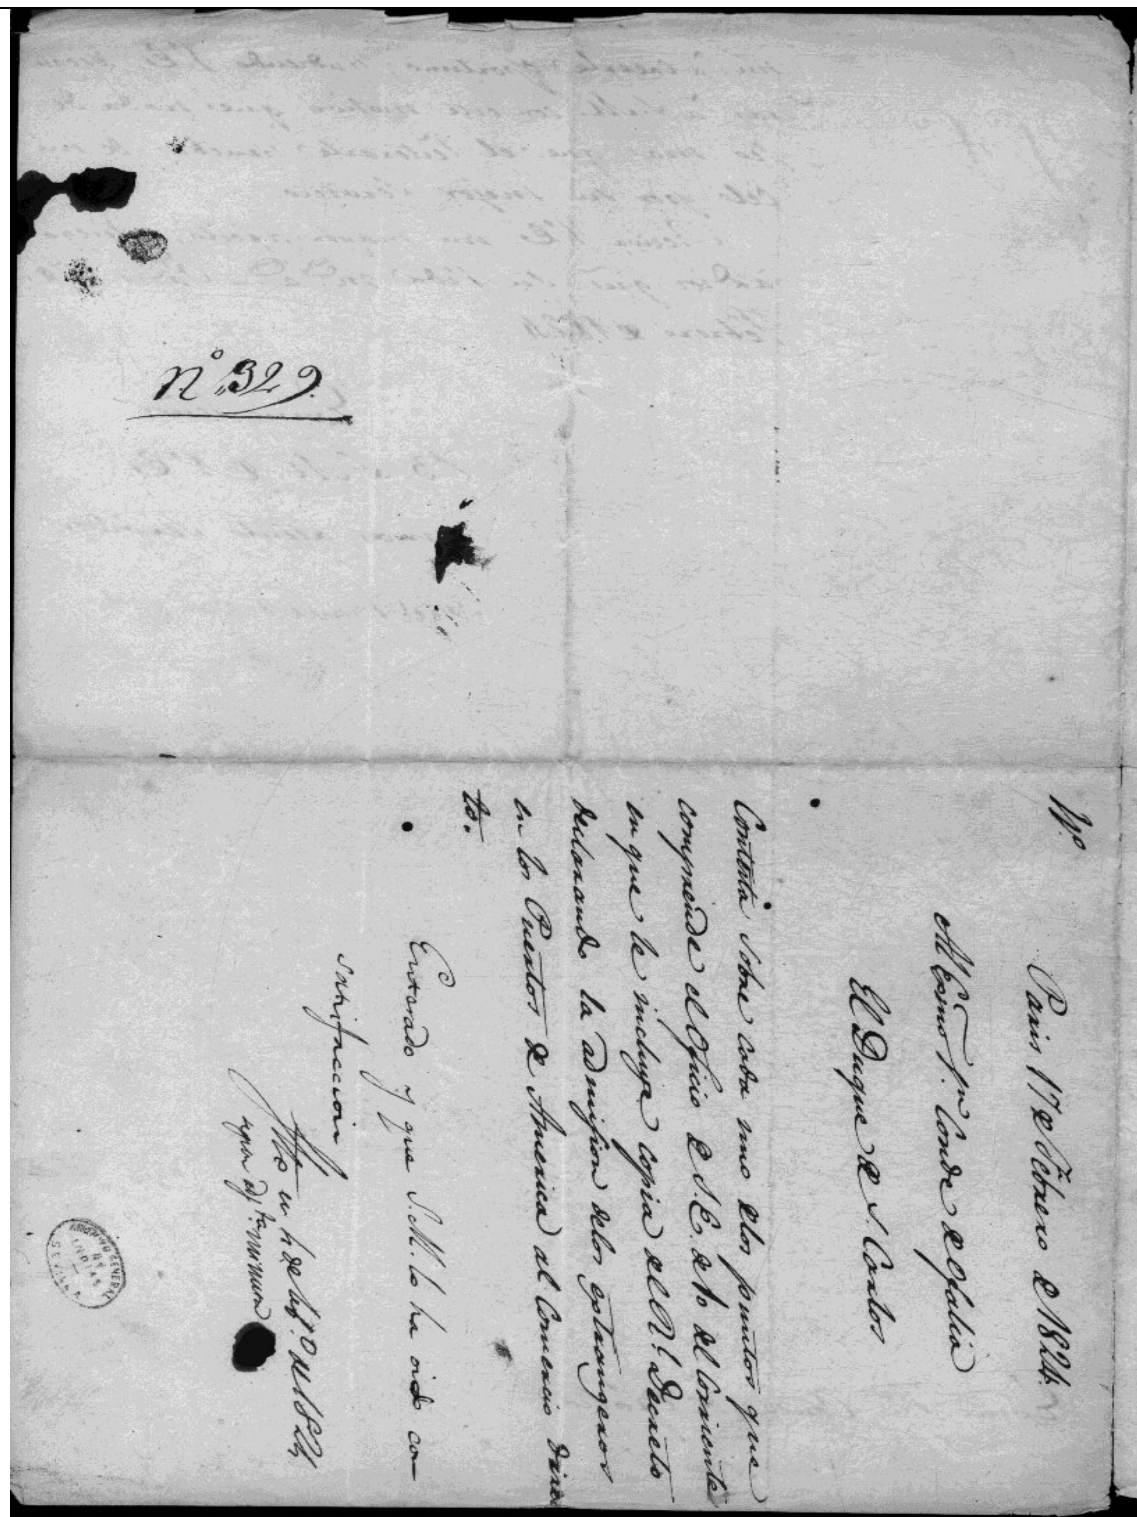 N.º 329.
N.º
Paris 17 de Febrero de 1824.
Al Exmo S.ºr Conde de Ofalia
El Duque de S. Carlos
Contesta sobre cada uno de los puntos que
comprende el Oficio de S.E. de 10 del corriente
en que le incluye copia del R.l Decreto
declarando la admision de los estrangeros
en los Puertos de America al Comercio direc
to.
Enterado y que S.M. lo ha oido con
satisfaccion
fho en
de 1824
ARCHIVO GENERAL
DE
INDIAS
SEVILLA